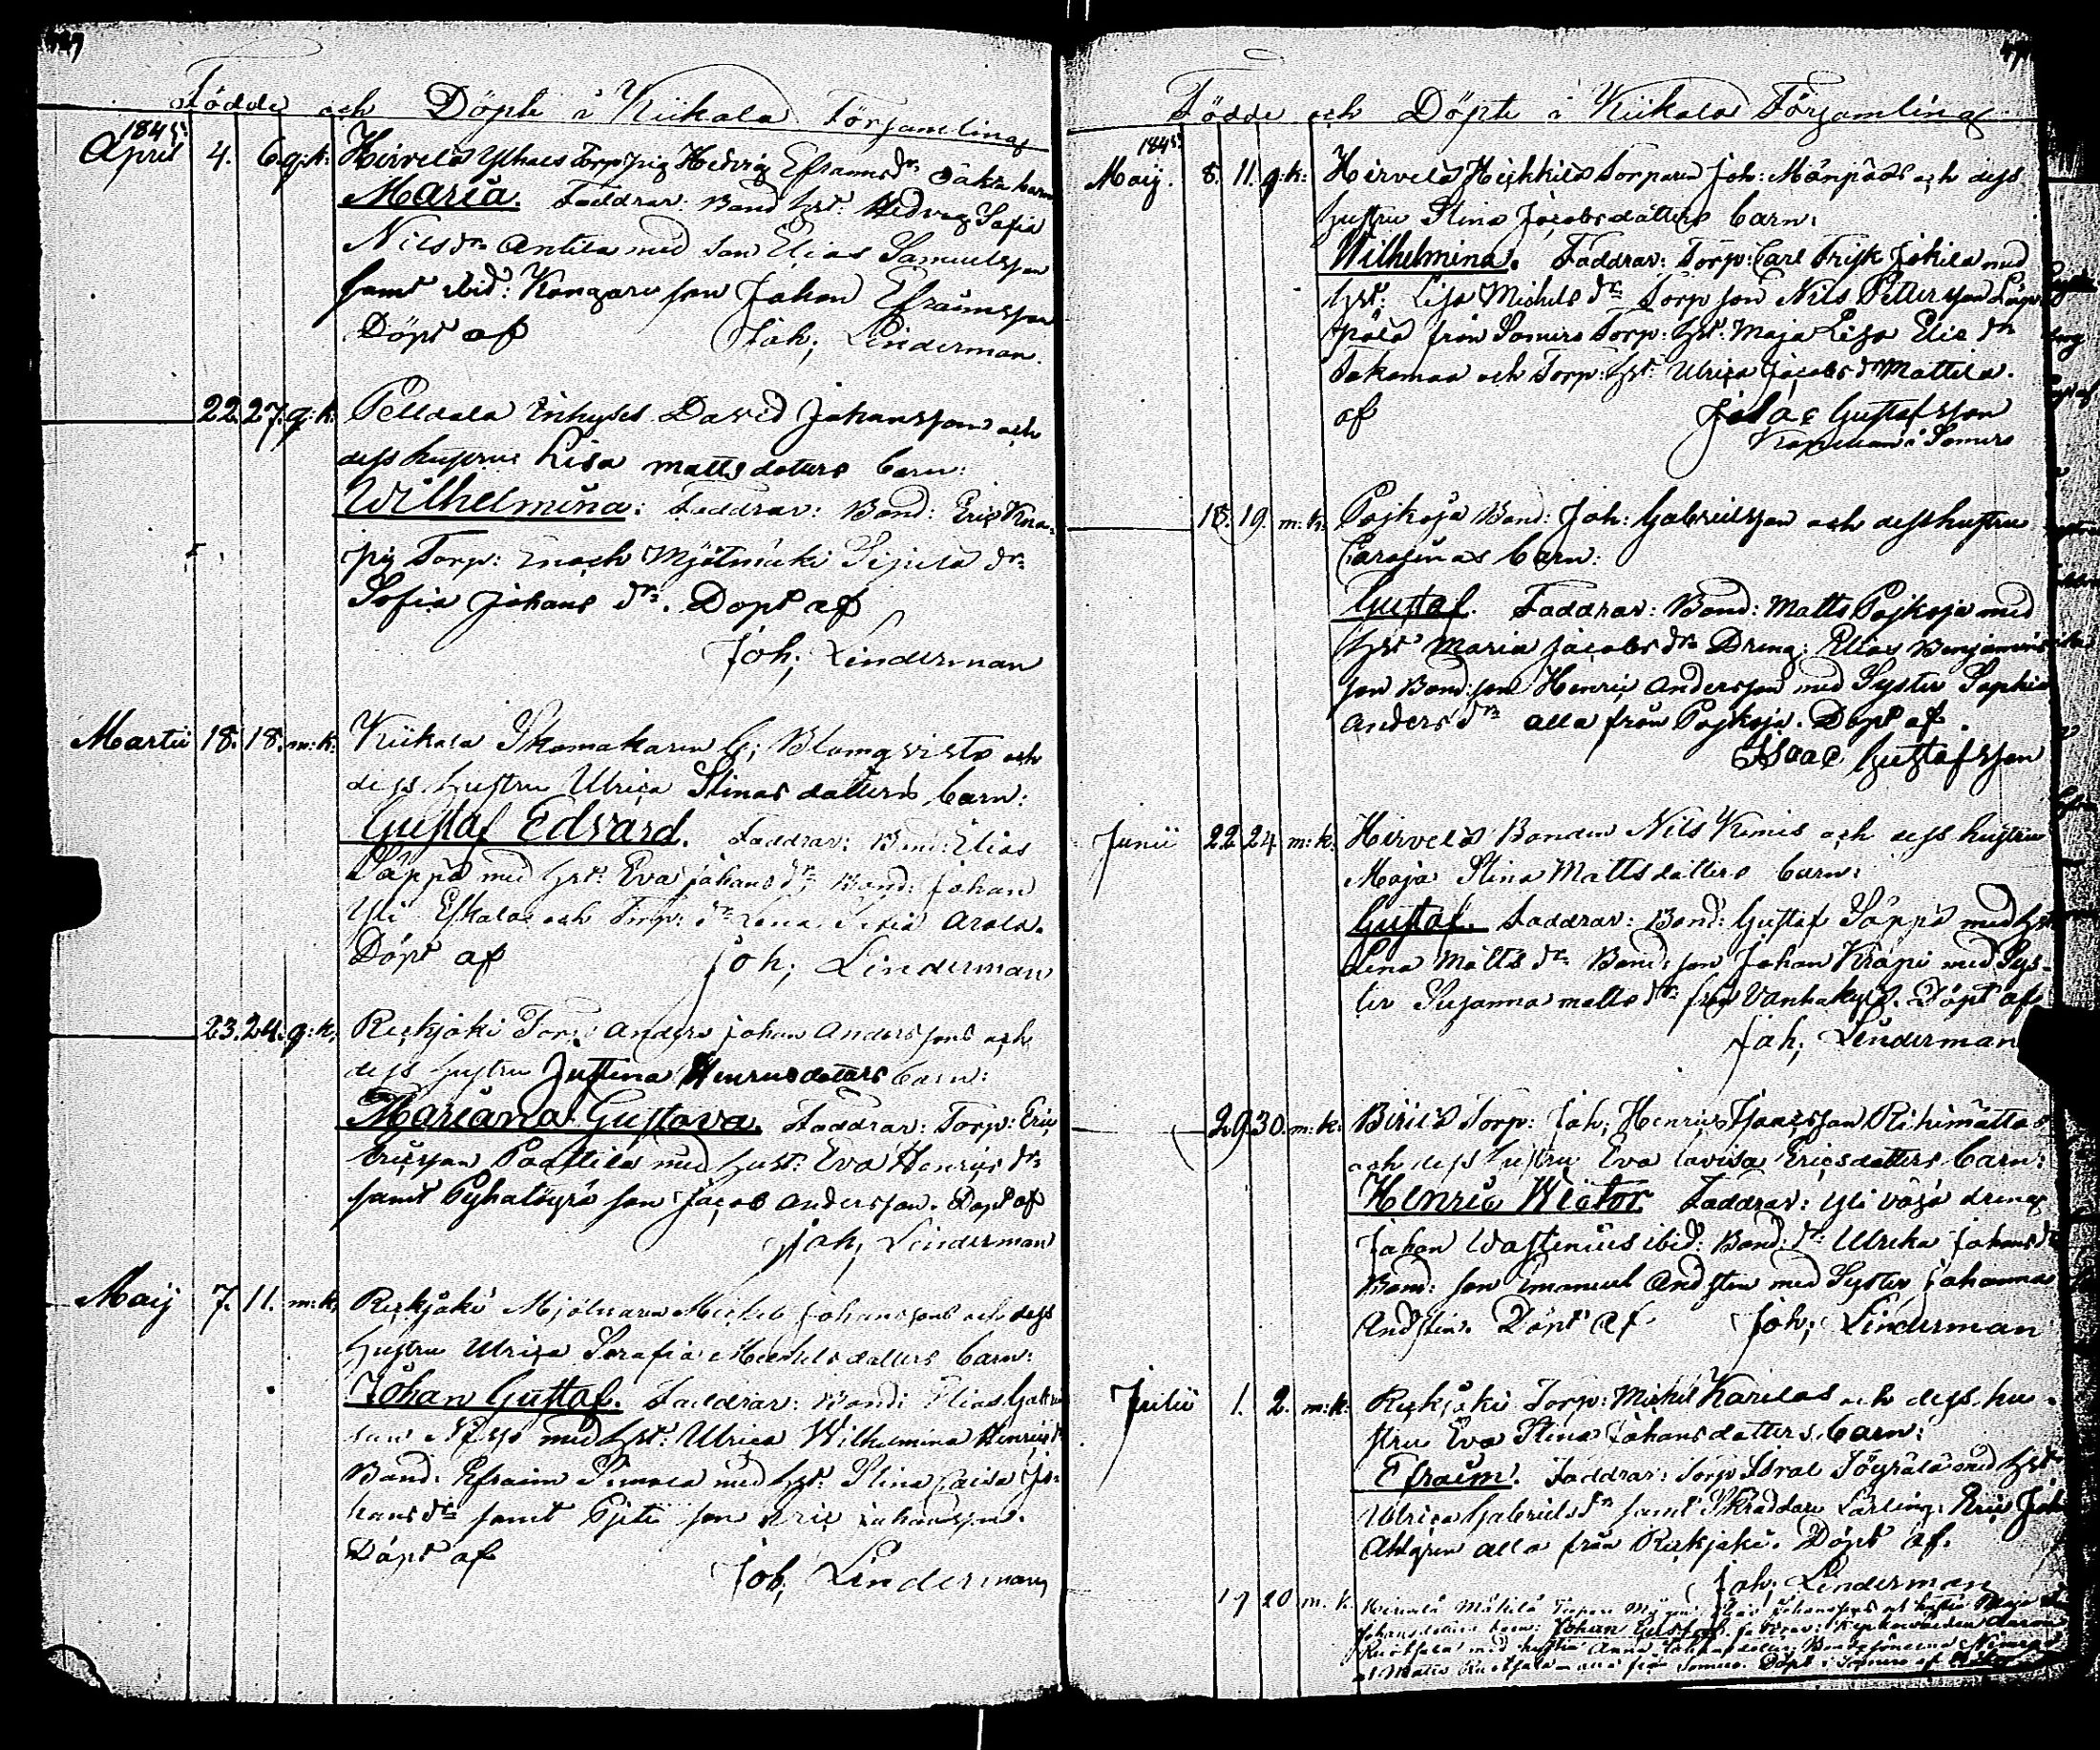 Födde och Döpte i Kiikala Församling
1845.
April 4. 6. q:k: Hirvelä Torp pig Hedvig Efraims dr oäkta barn
Maria. Faddrar: Bond hst: Hedvig Sofia
Nils dr Antila med son Elias Samuelsson
samt ibid: Kangare son Johan Efraimsson
Döpt af Joh; Linderman.
22. 27. q:k: Pelldala Inhyses David Johanssons och
dess hustrus Lisa Mattsdotters barn:
Wilhelmina: Faddrar: Bond: Eric
pig Torp: Enoch dr
Sofia Johans dr. Döpt af
Joh; Linderman
Martii 18. 18. m:k: Kiikala Skomakaren C; Blomqvists och
dess hustru Ulrica Stinas dotters barn:
Gustaf Edvard. Faddrar: Bond: Elias
Säppä med hst: Eva Johans dr, Bond: Johan
Yli Eskala och Torp: dr Lena Sofia Arola.
Döpt af Joh; Linderman
23. 24. q:k: Rekjoki Torp: Anders Johan Anderssons och
dess hustru Justina Henricsdotters barn:
Mariana Gustava. Faddrar: Torp: Eric
Ericsson Paattila med hust: Eva Henrics dr
samt son Jacob Andersson. Döpt af
Joh; Linderman
Maij 7. 11. m:k: Rekjoki Mjölnaren Michel Johanssons och dess
hustru Ulrica Serafia Michelsdotters barn:
Johan Gustaf. Faddrar: Bond: Elias
med hst: Ulrica Wilhelmina Henrics dr
Bond: Efraim med hst: Stina Caisa Jo-
hans dr samt son Eric Johansson.
Döpt af Joh; Linderman
Födde och Döpte i Kiikala Församling
1845.
Maij. 8. 11. q:k: Hirvelä Heikkilä Torparen Joh: Mänpääs och dess
hustru Stina Jacobsdotters barn:
Wilhelmina. Faddrar: Torp: Carl Frisk Jokila med
hst: Lisa Michels dr Torp son Nils Pettersson
från Somero Torp: hst: Maja Lisa Elie dr
Takamaa och Torp: hst: Ulrica Jacobs dr Mattila.
af Isaac Gustafsson
Kapellan i Somero
18. 19. m:k: Pojkoja Bond: Joh: Gabrielsson och dess hustru
Carolinas barn:
Gustaf. Faddrar: Bond: Matts Pojkoja med
hst Maria Jacobs dr Dreng: Elias Benjamins
son Bond: son Henric Andersson med Syster Sophia
Anders dr alla från Pojkoja. Döpt af.
Isaac Gustafsson
Junii 22 24 m:k: Hirvelä Bonden Nils Kimis och dess hustru
Maja Stina Mattsdotters barn:
Gustaf. Faddrar: Bond: Gustaf Säppä med hst
Lena Matts dr Bond: son Johan Kräpi med Sys-
ter Susanna Matts dr från Vanhakylä. Döpt af
Joh; Linderman
29. 30. m:k: Birilä Torp: Joh; Henric Isacsson Rihimättas
och dess hustru Eva Lovisa Ericsdotters barn:
Henric Wictor Faddrar: dreng
Johan Wastenius ibid: Bond: dr: Ulrika Johans dr
Bond: son Emanuel Andsten med Syster Johanna
Andsten. Döpt af Joh; Linderman
Julii 1. 2. m:k: Rekjoki Torp: Michel Karilas och dess hu-
stru Eva Stina Johansdotters barn:
Efraim. Faddrar: Torp Isral Töyrälä med hst
Ulrica Gabriels dr samt Skräddare Lärling: Eric Joh
Ahlgren alla från Rekjoki. Döpt af.
Joh; Linderman
19 20 m. k. Hirvelä Mäkilä Johanssons och hustru Maja
Johansdotters barn: Johan Gustaf. Faddrar: Kyrkovärden
med hustru Anna
och Matts alla från Somero. Döpt i Somero af